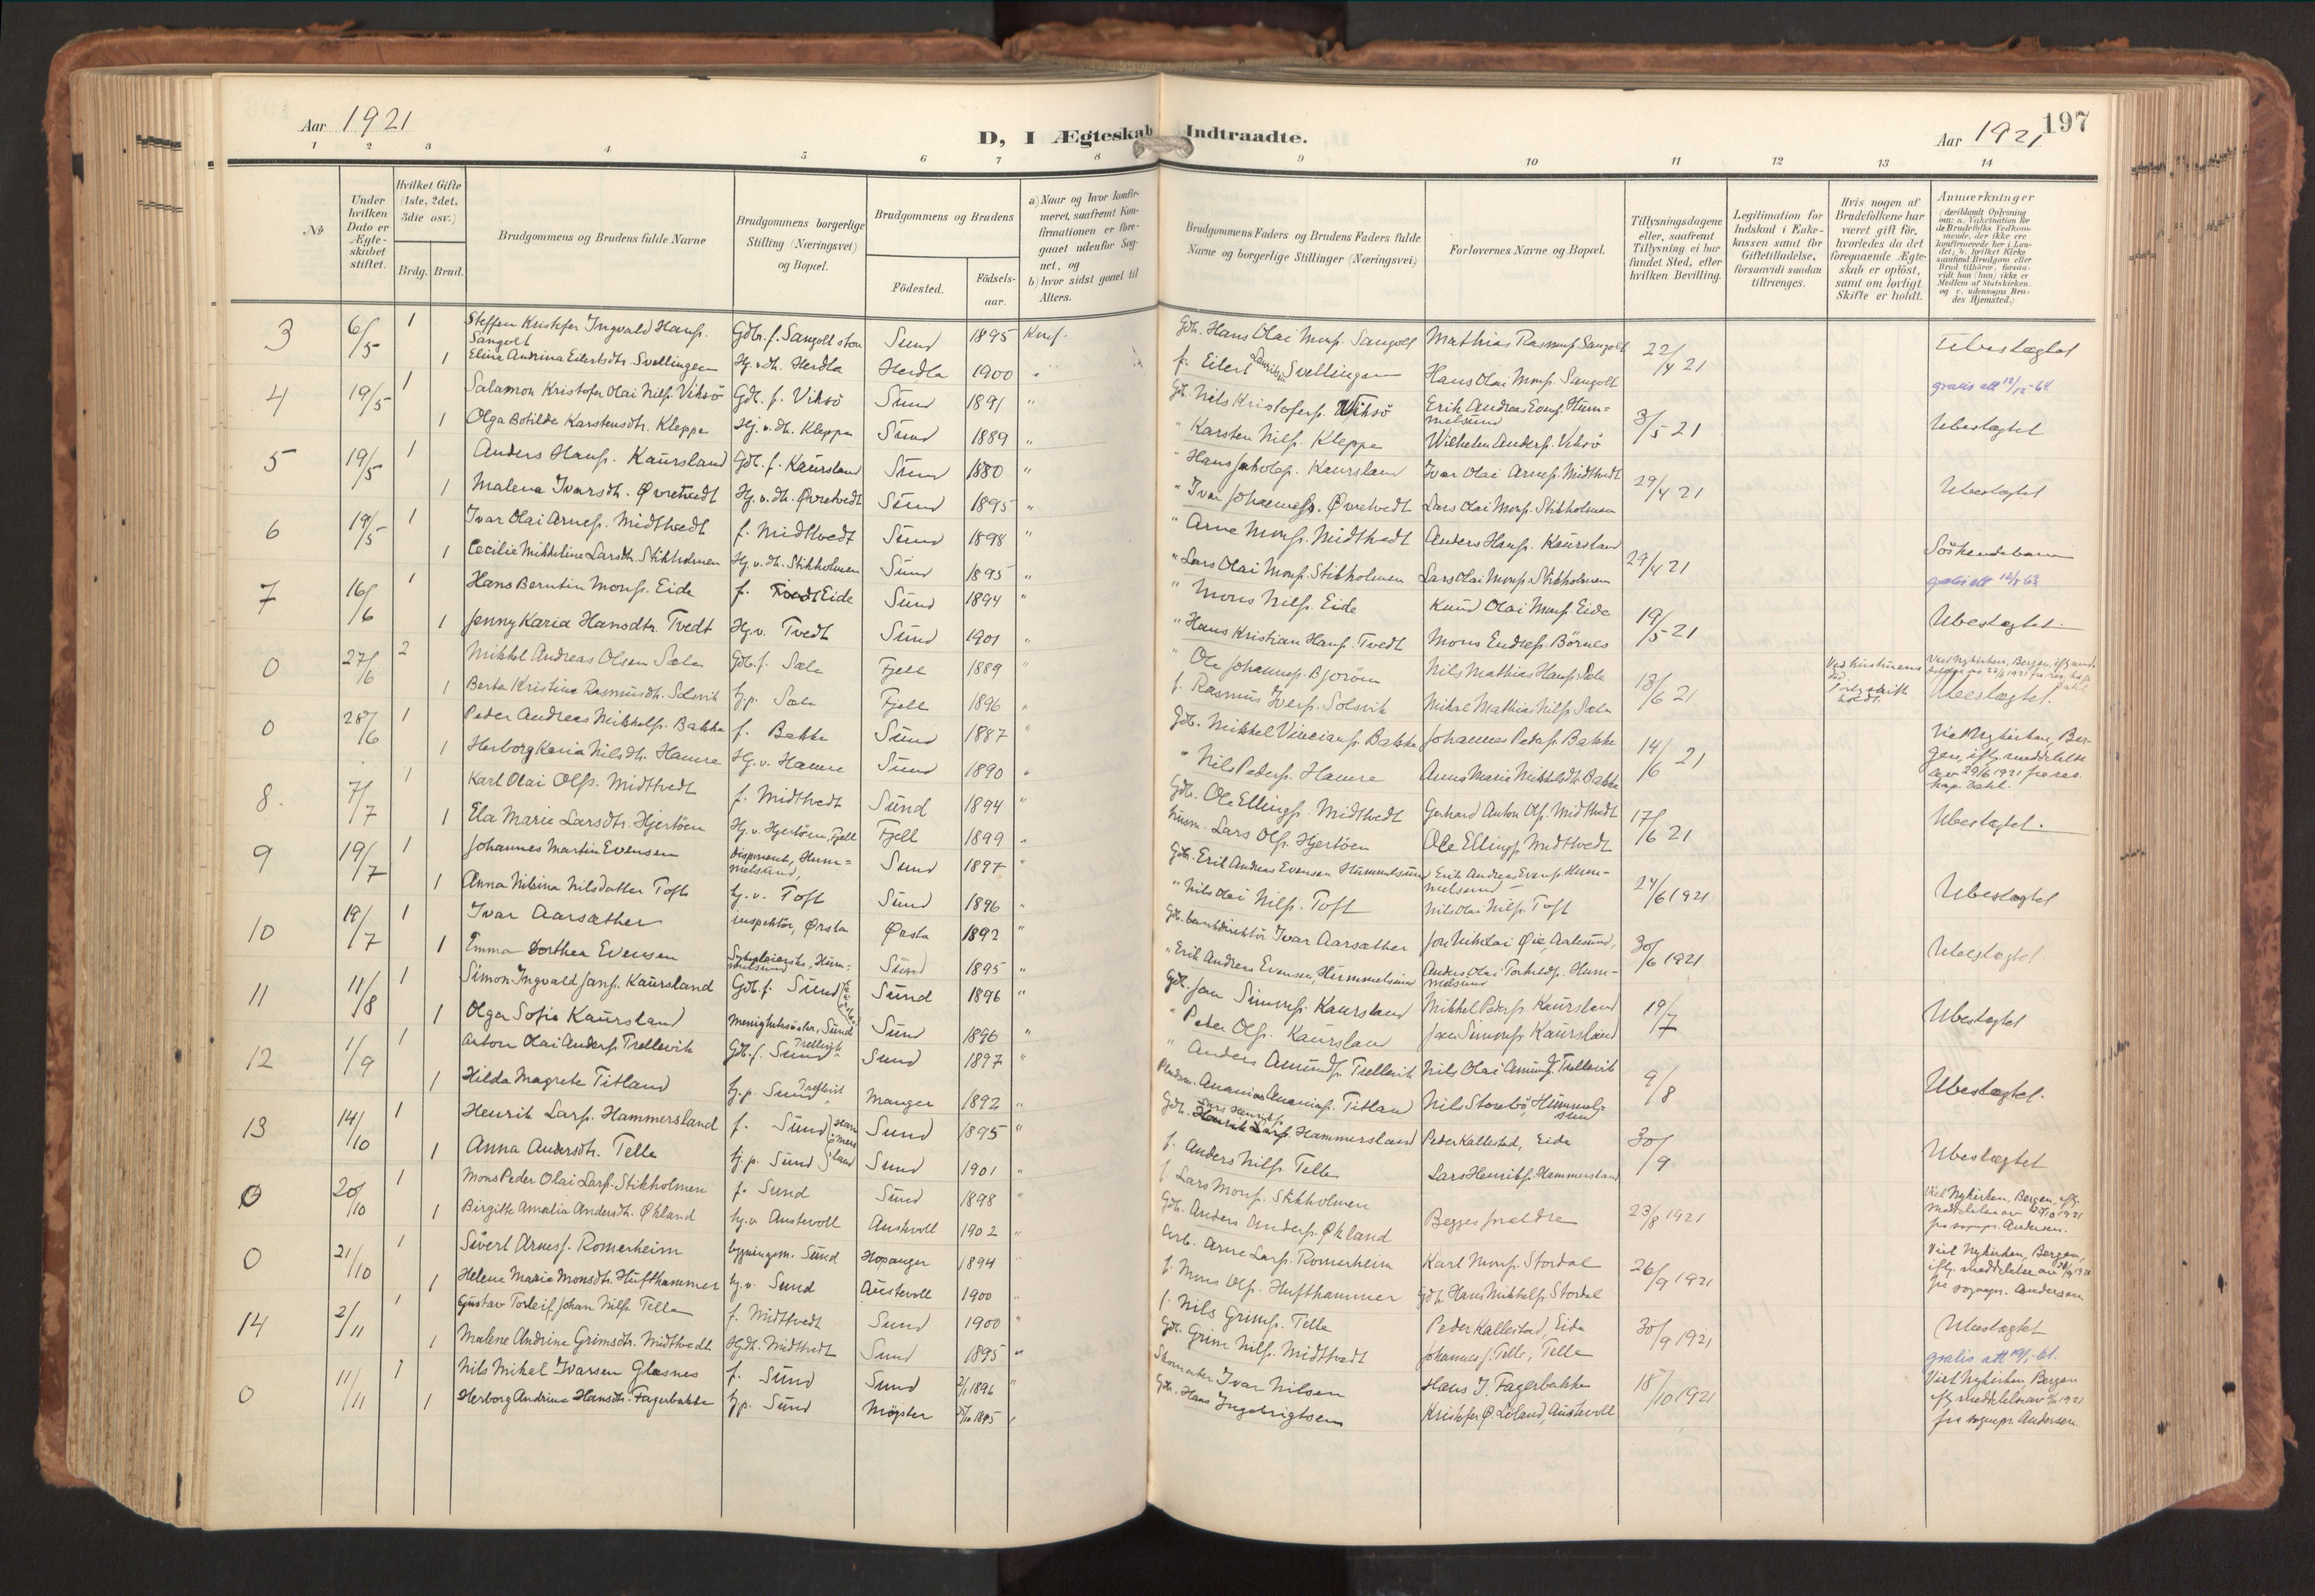 Aar 1921
D, I Ægteskab Indtraadte.
Aar 1921
197
1 2 3 4 5 6 7 8 9 10 11 12 13 14
No
Under hvilken Dato er Ægteskabet stiftet.
Hvilket Gifte (1ste, 2det, 3die osv.)
Brdg. Brud.
Brudgommens og Brudens fulde Navne
Brudgommens borgerlige Stilling (Næringsvei) og Bopæl.
Brudgommens og Brudens
Födested.
Födsels-aar.
a) Naar og hvor konfirmeret, saafremt Konfirmationen er foregaaet udenfor Sognet, og
b) hvor sidst gaaet til Alters.
Brudgommens Faders og Brudens Faders fulde Navne og borgerlige Stillinger (Næringsvei)
Forlovernes Navne og Bopæl.
Tillysningsdagene eller, saafremt Tillysning ei har fundet Sted, efter hvilken Bevilling.
Legitimation for Indskud i Enkekassen samt for Giftetilladelse, forsaavidt saadan tiltrænges.
Hvis nogen af Brudefolkene har været gift för, hvorledes da det foregaaende Ægteskab er oplöst, samt om lovligt Skifte er holdt.
Anmærkninger
(deriblandt Oplysning om: a. Vakcination for de Brudefolks Vedkommende, der ikke ere konfirmerede her i Landet; b. hvilket Kirkesamfund Brudgom eller Brud tilhörer, forsaavidt han (hun) ikke er Medlem af Statskirken. og c. udensogns Brudes Hjemsted.)
3 6/5 1 Steffen Kristofer Ingvald Hanss. Sangolt Gdbr. s. Sangolt Sund 1895 Knf. Gdb. Hans Olai Monss. Sangolt Mathias Rasmuss. Sangolt 22/4 21 Ubeslægtet
1 Eline Andrina Eilertsdtr. Svellingen Hj. v. dt. Herdla Herdla 1900 " f. Eilert Svellingen Hans Olai Monss. Sangolt
4 19/5 1 Salamon Kristofer Olai Nilss. Viksö Gdb. s. Viksö Sund 1891 " Gb. Nils Kristofers. Viksö Erik Andreas Evens. Hummelsund 3/5 21 gratis att 12/12-64 Ubeslægtet
1 Olga Botilde Karstensdtr. Kleppe Hj. v. dt. Kleppe Sund 1889 " " Karsten Nilss. Kleppe Wilhelm Anders. Viksö
5 19/5 1 Anders Hanss. Kaursland Gdb. s. Kaursland Sund 1880 " " Hans Jakobs. Kaursland Ivar Olai Arnes. Midttvedt 29/4 21 Ubeslægtet
1 Malena Ivarsdtr. Øvretvedt Hj. v. dt. Øvretvedt Sund 1895 " " Ivar Johanness. Øvretvedt Lars Olai Monss. Stikholmen
6 19/5 1 Ivar Olai Arnes. Midttvedt f. Midttvedt Sund 1898 " " Arne Monss. Midttvedt Anders Hanss. Kaursland 29/4 21 Söskendebarn
1 Cecilie Mikkeline Larsdtr. Stikholmen Hj. v. dt. Stikholmen Sund 1895 " " Lars Olai Monss. Stikholmen Lars Olai Monss. Stikholmen
7 16/6 1 Hans Berntin Monss. Eide f. Tvedt Eide Sund 1894 " " Mons Nilss. Eide Knud Olai Monss. Eide 19/5 21 Ubeslægtet
1 Jenny Karia Hansdtr. Tvedt Hj. v. Tvedt Sund 1901 " " Hans Kristian Hanss. Tvedt Mons Endres. Börnes
0 27/6 2 Mikkel Andreas Olsen Sæle Gdb. f. Sæle Fjell 1889 " " Ole Johanness. Bjoröen Nils Mathias Hanss. Sæle 13/6 21 Ubeslægtet.
1 Berta Kristine Rasmusdtr. Solsvik hj. p. Sæle Fjell 1896 " f. Rasmus Ivers. Solsvik Mikal Mathias Nilss. Sæle
0 28/6 1 Peder Andreas Mikkels. Bakke f. Bakke Sund 1887 " Gdb. Mikkel Vincians. Bakke Johannes Peders. Bakke 14/6 21 Viet Nykirken, Bergen, iflg. meddelelse av 29/6 1921 fra res. kap. Dahl.
1 Herborg Karia Nilsdtr. Hamre Hj. v. Hamre Sund 1890 " " Nils Peders. Hamre Anna Marie Mikkelsdtr. Bakke
8. 7/7 1 Karl Olai Olss. Midttvedt f. Midttvedt Sund 1894 " Gdb. Ole Ellings. Midttvedt Gerhard Anton Ols. Midttvedt 17/6 21 Ubeslægtet.
1 Ela Marie Larsdtr. Hjertöen Hj. v. Hjertöen, Fjell Fjell 1899 " husm. Lars Olss. Hjertöen Ole Ellings. Midttvedt
9 19/7 1 Johannes Martin Evensen disponent, Hummelsund, Sund 1897 " Gdb. Erik Andreas Evensen Hummelsund Erik Andreas Evens. Hummelsund 24/6 1921 Ubeslægtet
1 Anna Nilsina Nilsdatter Toft hj. v. Toft Sund 1896 " " Nils Olai Nilss. Toft Nils Olai Nilss. Toft
10 19/7 1 Ivar Aarsæther inspektör, Ørsta Ørsta 1892 " Ivar Aarsæther Jon Nikolai Øie, Aalesund, 30/6 1921 Ubeslægtet
1 Emma Dorthea Evensen Hummelsund Sund 1895 " " Erik Andreas Evensen, Hummelsund Anders Olai Torkilds. Hummelsund
11 11/8 1 Simon Ingvald Jans. Kaursland Gdb. f. Sund Sund 1896 " Gdb. Jan Simons. Kaursland Mikkel Peders. Kaursland 19/7 Ubeslægtet
1 Olga Sofie Kaursland Menighetssöster, Sund Sund 1896 " " Peder Olss. Kaursland Jan Simons. Kaursland
12 1/9 1 Anton Olai Anders. Trellevik Gdb. f. Sund Trellevik Sund 1897 " " Anders Amunds. Trellevik Nils Olai Amunds. Trellevik 9/8 Ubeslægtet.
1 Hilda Magrete Titland hj. p. Sund Trellevik Manger 1892 " Pladsm. Ananias Ananias. Titland Nils Storebö, Hummelsund
13 14/10 1 Henrik Larss. Hammersland f. Sund Hammersland Sund 1895 " Gdb. Lars Henriks. Hammersland Peder Kallestad, Eide 30/9 Ubeslægtet
1 Anna Andersdtr. Telle hj. p. Sund Sund 1901 " f. Anders Nilss. Telle Lars Henriks. Hammersland
0 20/10 1 Mons Peder Olai Larss. Stikholmen f. Sund Sund 1898 " f. Lars Monss. Stikholmen Begges forældre 23/8 1921 Viet Nykirken, Bergen, iflg. meddelelse av 20/10 1921 fra sognepr. Andersen.
1 Birgitte Amalia Andersdtr. Økland hj. v. Austevoll Austevoll 1902 " Gdb. Anders Anders. Økland
0 21/10 1 Sivert Arness. Romerheim bygningsm. Sund Hosanger 1894 " Arb. Arne Larss. Romerheim Karl Monss. Stordal 26/9 1921 Viet Nykirken, Bergen, iflg. meddelelse av 1921 fra sognepr. Andersen
1 Helene Marie Monsdtr. Hufthammer hj. v. Sund Austevoll 1900 " f. Mons Olss. Hufthammer Gdb. Hans Mikkels. Stordal
14 2/11 1 Gustav Torleif Johan Nilss. Telle f. Midttvedt Sund 1900 " f. Nils Grims. Telle Peder Kallestad, Eide 30/9 1921 Ubeslægtet
1 Malene Andrine Grimsdtr. Midttvedt Hj. dt. Midttvedt Sund 1895 " Gdb. Grim Nilss. Midttvedt Johannes J. Telle, Telle
0 11/11 1 Nils Mikal Ivarsen Glæsnes f. Sund Sund 2/1 1896 " Skomaker Ivar Nilsen Hans J. Fagerbakke 18/10 1921 Viet Nykirken, Bergen iflg. meddelelse av 1921 fra sognepr. Andersen.
1 Herborg Andrine Hansdtr. Fagerbakke hj. p. Sund Møgster 1895 Gdb. Hans Ingebrigtsen Kristofer Ø. Løland, Austevoll